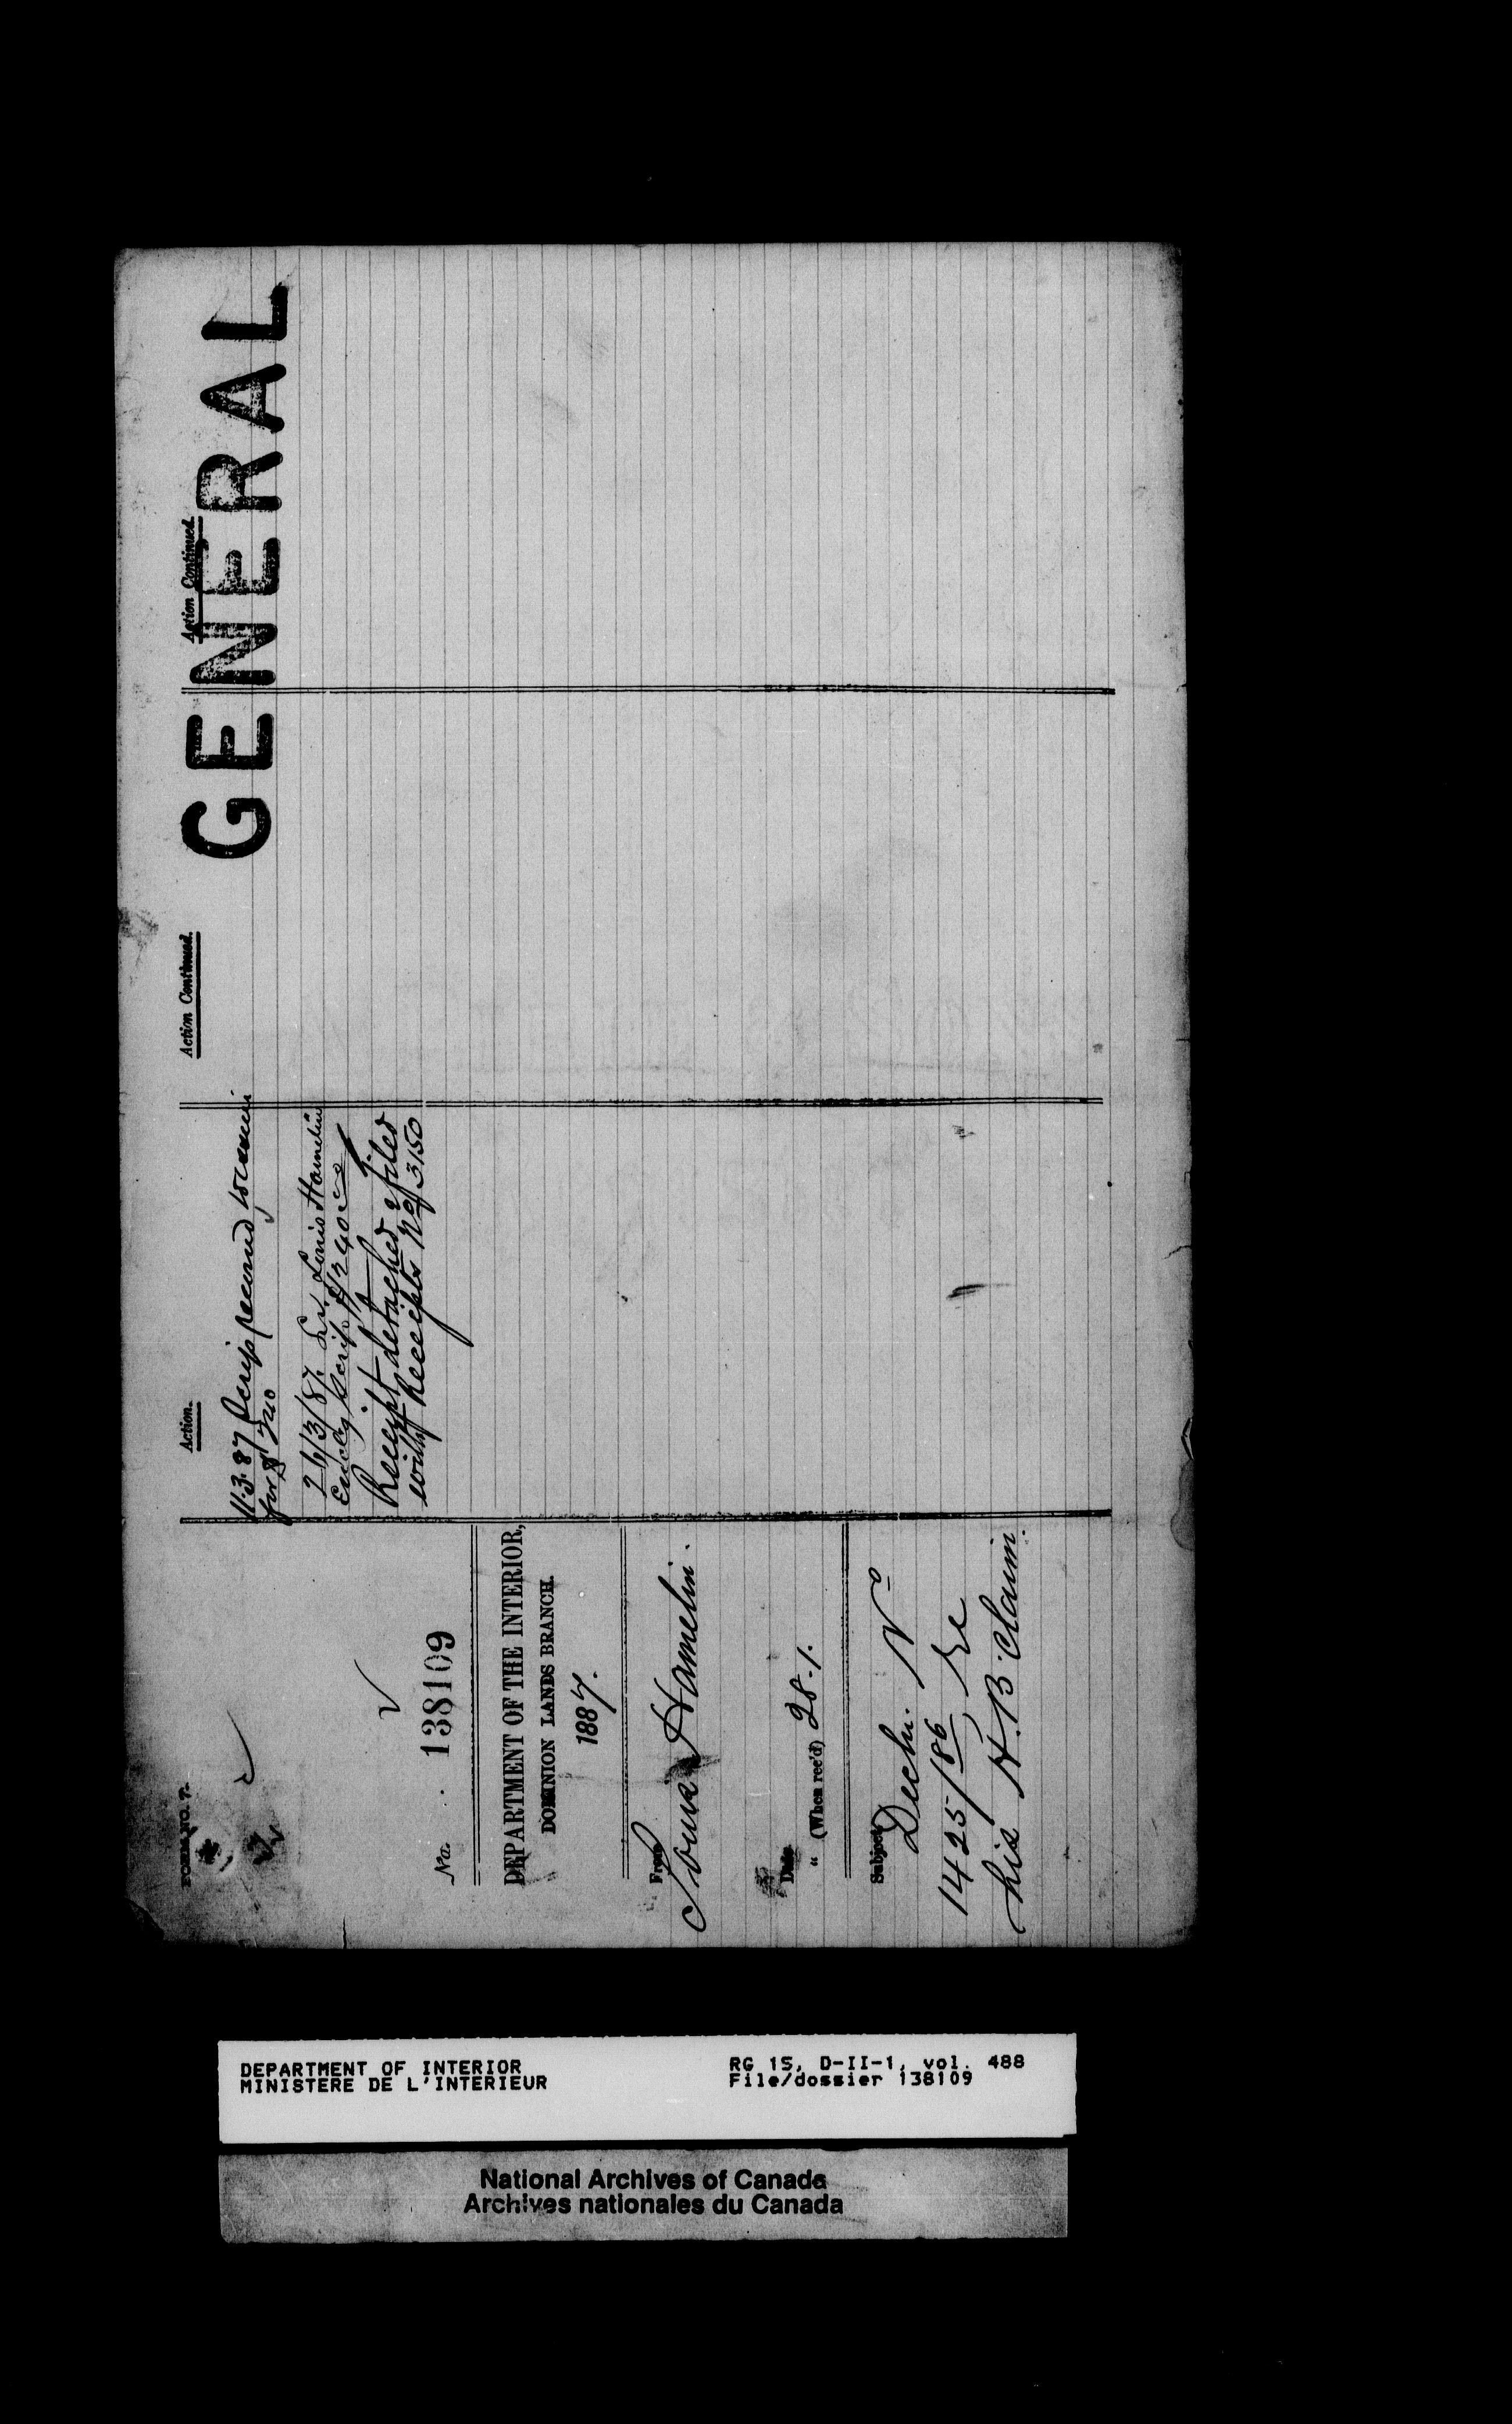 GENERAL
FORM NO. 7.
No. 138109
DEPARTMENT OF THE INTERIOR,
DOMINION LANDS BRANCH.
1887.
From
Louis Hamelin.
Date
" (When rec'd) 28.1.
Subject
Decln. No
1425/86, re
his H.B. Claim.
Action.
11.3.87 Scrip
for $240
26/3/87. Louis Hamelin
Enclg Scrip $240
Receipt detached & filed
with Receipts No 3150
Action Continued.
Action Continued.
DEPARTMENT OF INTERIOR
MINISTERE DE L'INTERIEUR
RG 15, D-II-1, vol. 488
File/dossier 138109
National Archives of Canada
Archives nationales du Canada